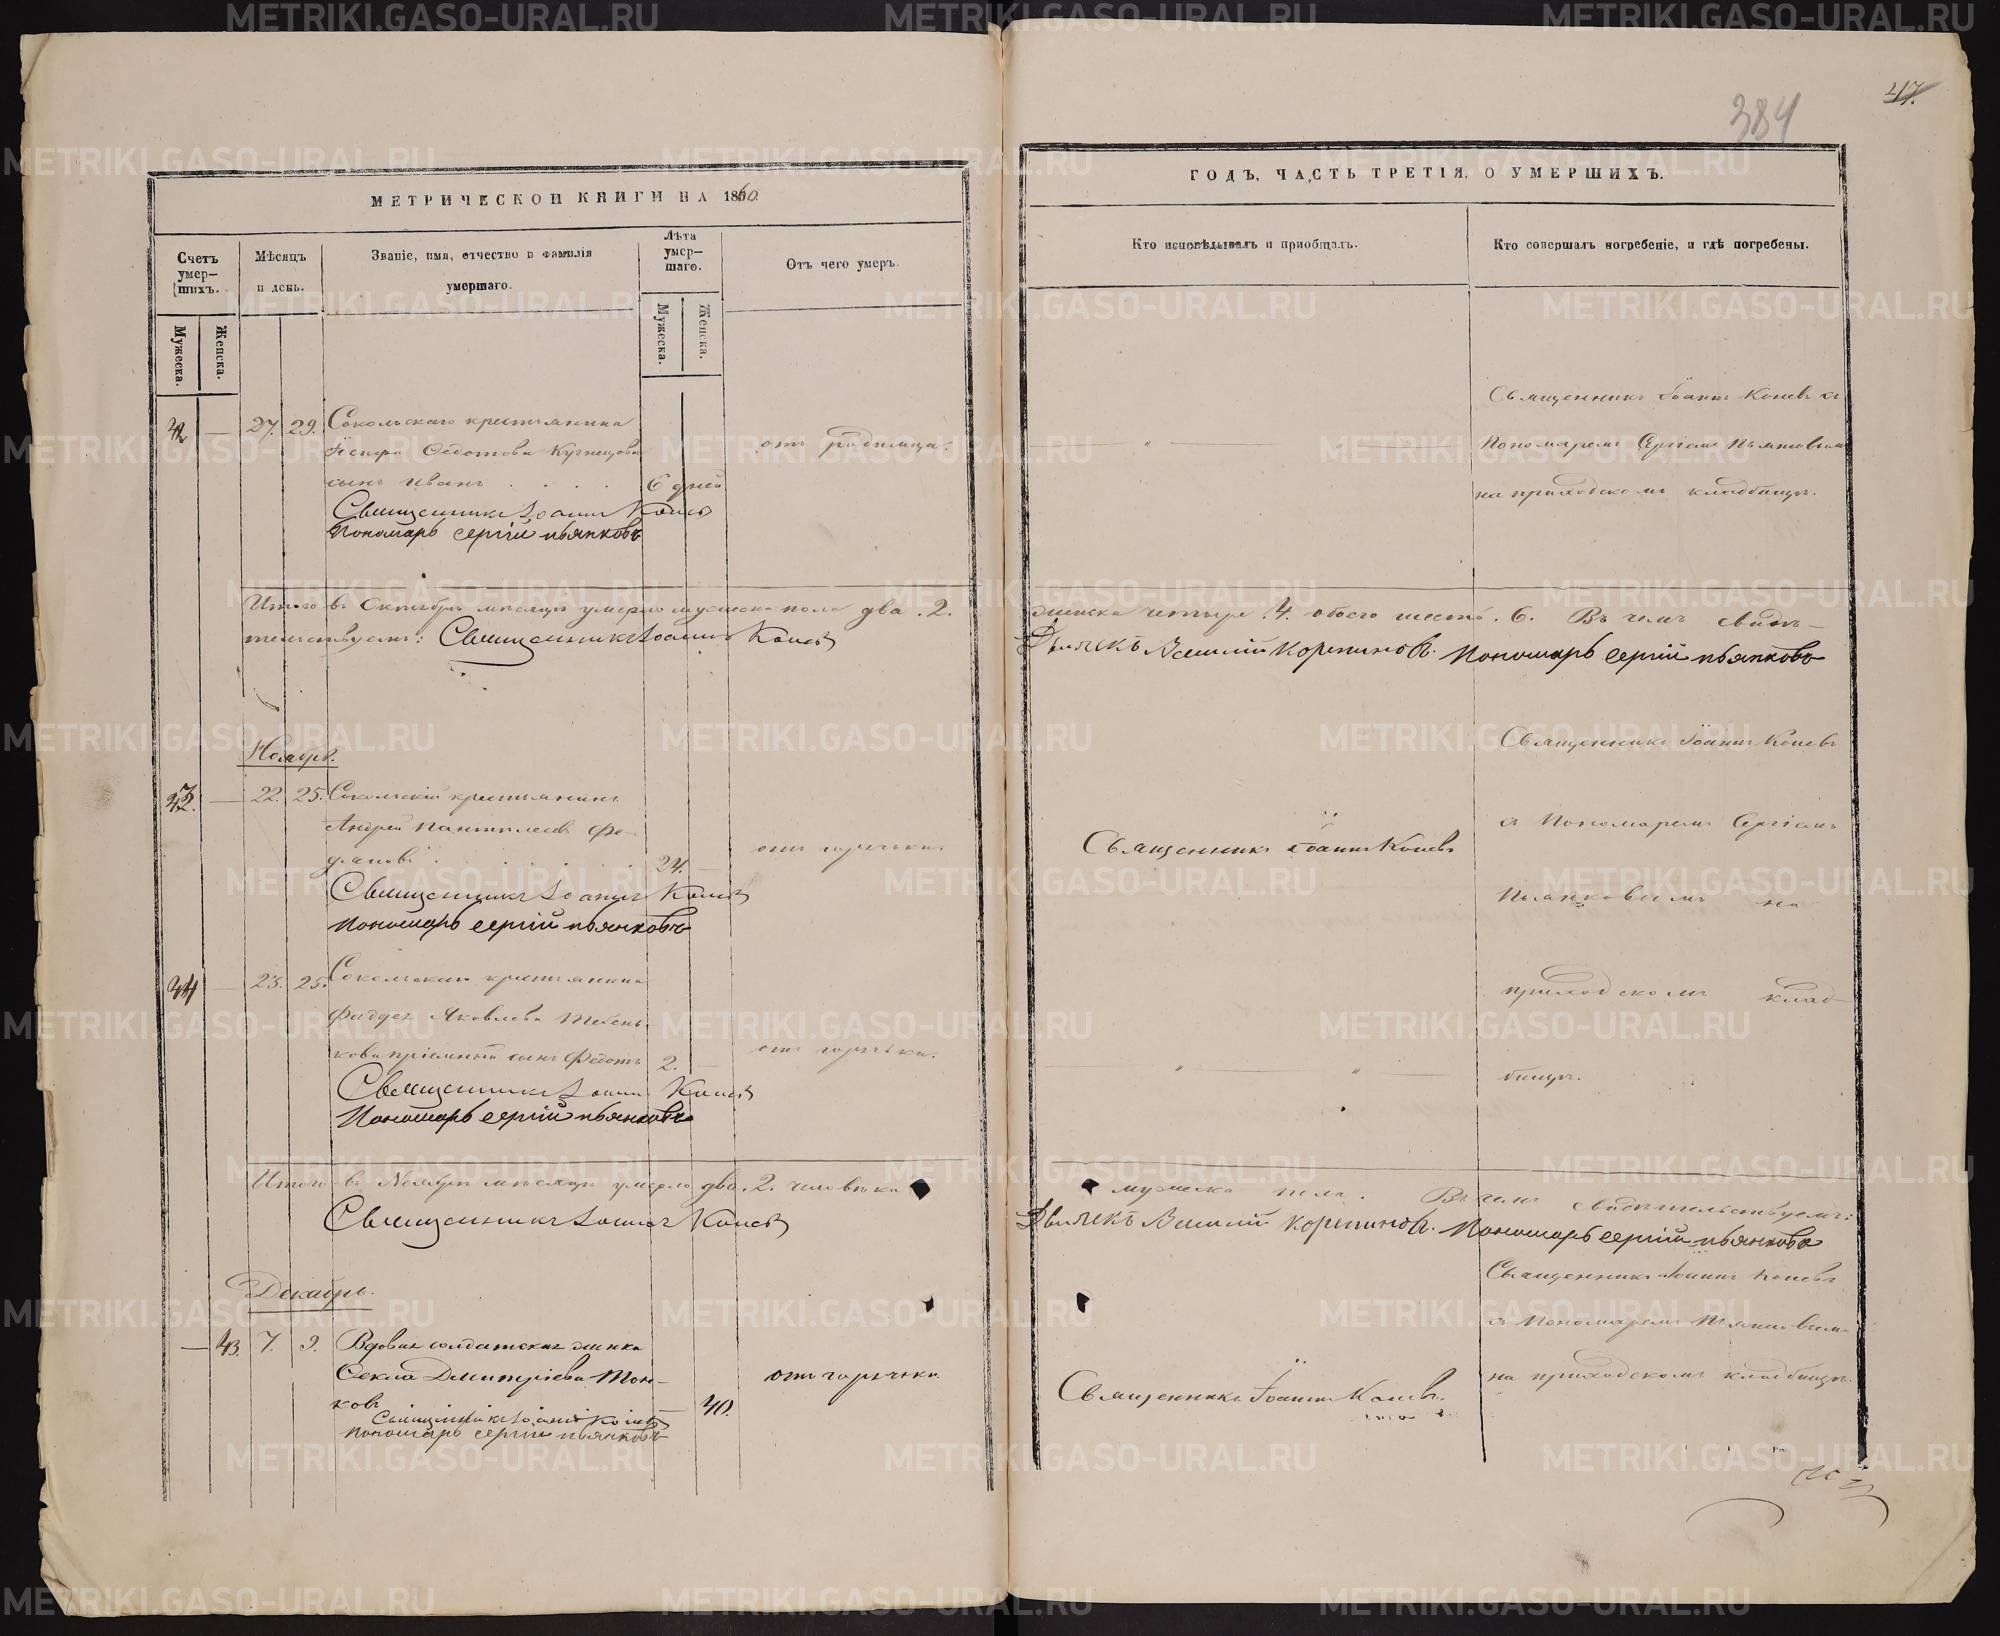 384
47.
МЕТРИЧЕСКОЙ КНИГИ НА 1860
ГОДЪ, ЧАСТЬ ТРЕТІЯ, О УМЕРШИХЪ.
Счетъ умер-шихъ.
Мужеска.
Женска.
Мѣсяцъ и день.
Званіе, имя, отчество и фамилія умершаго.
Лѣта умер-шаго.
Мужеска.
Женска.
Отъ чего умеръ.
Кто исповѣдывалъ и пріобщалъ.
Кто совершалъ погребеніе, и гдѣ погребены.
27. 29. Сокольскаго крестьянина
Федотова Кузнецова
сынъ Иванъ . . . . 6 дней
отъ родимца.
Священникъ Іоаннъ Коневъ
Пономарь Сергій Пьянковъ
Священникъ Іоаннъ Коневъ съ
Пономаремъ Сергіемъ Пьянковымъ
на приходскомъ кладбищѣ.
Итого въ Октябрѣ мѣсяцѣ умерло мужеска пола два .2.
женска четыре .4. обоего шесть .6. Въ чемъ свидѣ-
тельствуемъ: Священникъ Іоаннъ Коневъ
Дьячекъ Василій Корепиновъ. Пономарь Сергій Пьянковъ
Ноябрь.
22. 25. Сокольскій крестьянинъ
Андрей Пантилеевъ
24.
отъ горячки.
Священникъ Іоаннъ Коневъ
Пономарь Сергій Пьянковъ
Священникъ Іоаннъ Коневъ
Священникъ Іоаннъ Коневъ
съ Пономаремъ Сергіемъ
Пьянковымъ на
приходскомъ клад-
бищѣ.
44
23. 25. Сокольскаго крестьянина
Фаддея Яковлева Тебень-
кова пріемный сынъ Федотъ 2.
отъ горячки.
Священникъ Іоаннъ Коневъ
Пономарь Сергій Пьянковъ
Итого въ Ноябрѣ мѣсяцѣ умерло два .2. человѣка
мужеска пола. Въ чемъ свидѣтельствуемъ:
Священникъ Іоаннъ Коневъ
Дьячекъ Василій Корепиновъ. Пономарь Сергій Пьянковъ
Декабрь.
43. 7. 9. Вдовая солдатская женка
Фекла Дмитріева
40.
отъ горячки.
Священникъ Іоаннъ Коневъ
Пономарь Сергій Пьянковъ
Священникъ Іоаннъ Коневъ.
Священникъ Іоаннъ Коневъ
съ Пономаремъ Пьянковымъ
на приходскомъ кладбищѣ.
METRIKI.GASO-URAL.RU